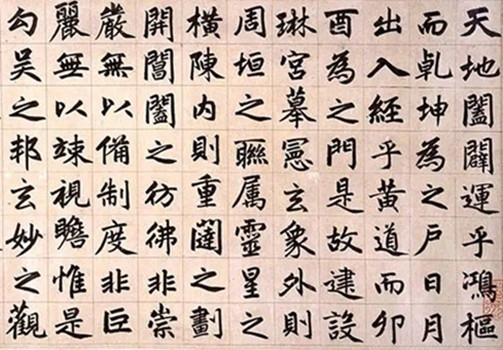 天地闔闢運乎鴻樞
而乹坤為之戶日月
出入經乎黄道而卯
酉為之門是故建設
琳宮摹憲玄象外則
周垣之聮属靈星之
橫陳内則重闥之劃
開閶闔之彷彿非崇
嚴無以備制度非巨
麗無以竦視瞻惟是
勾吴之邦玄妙之觀